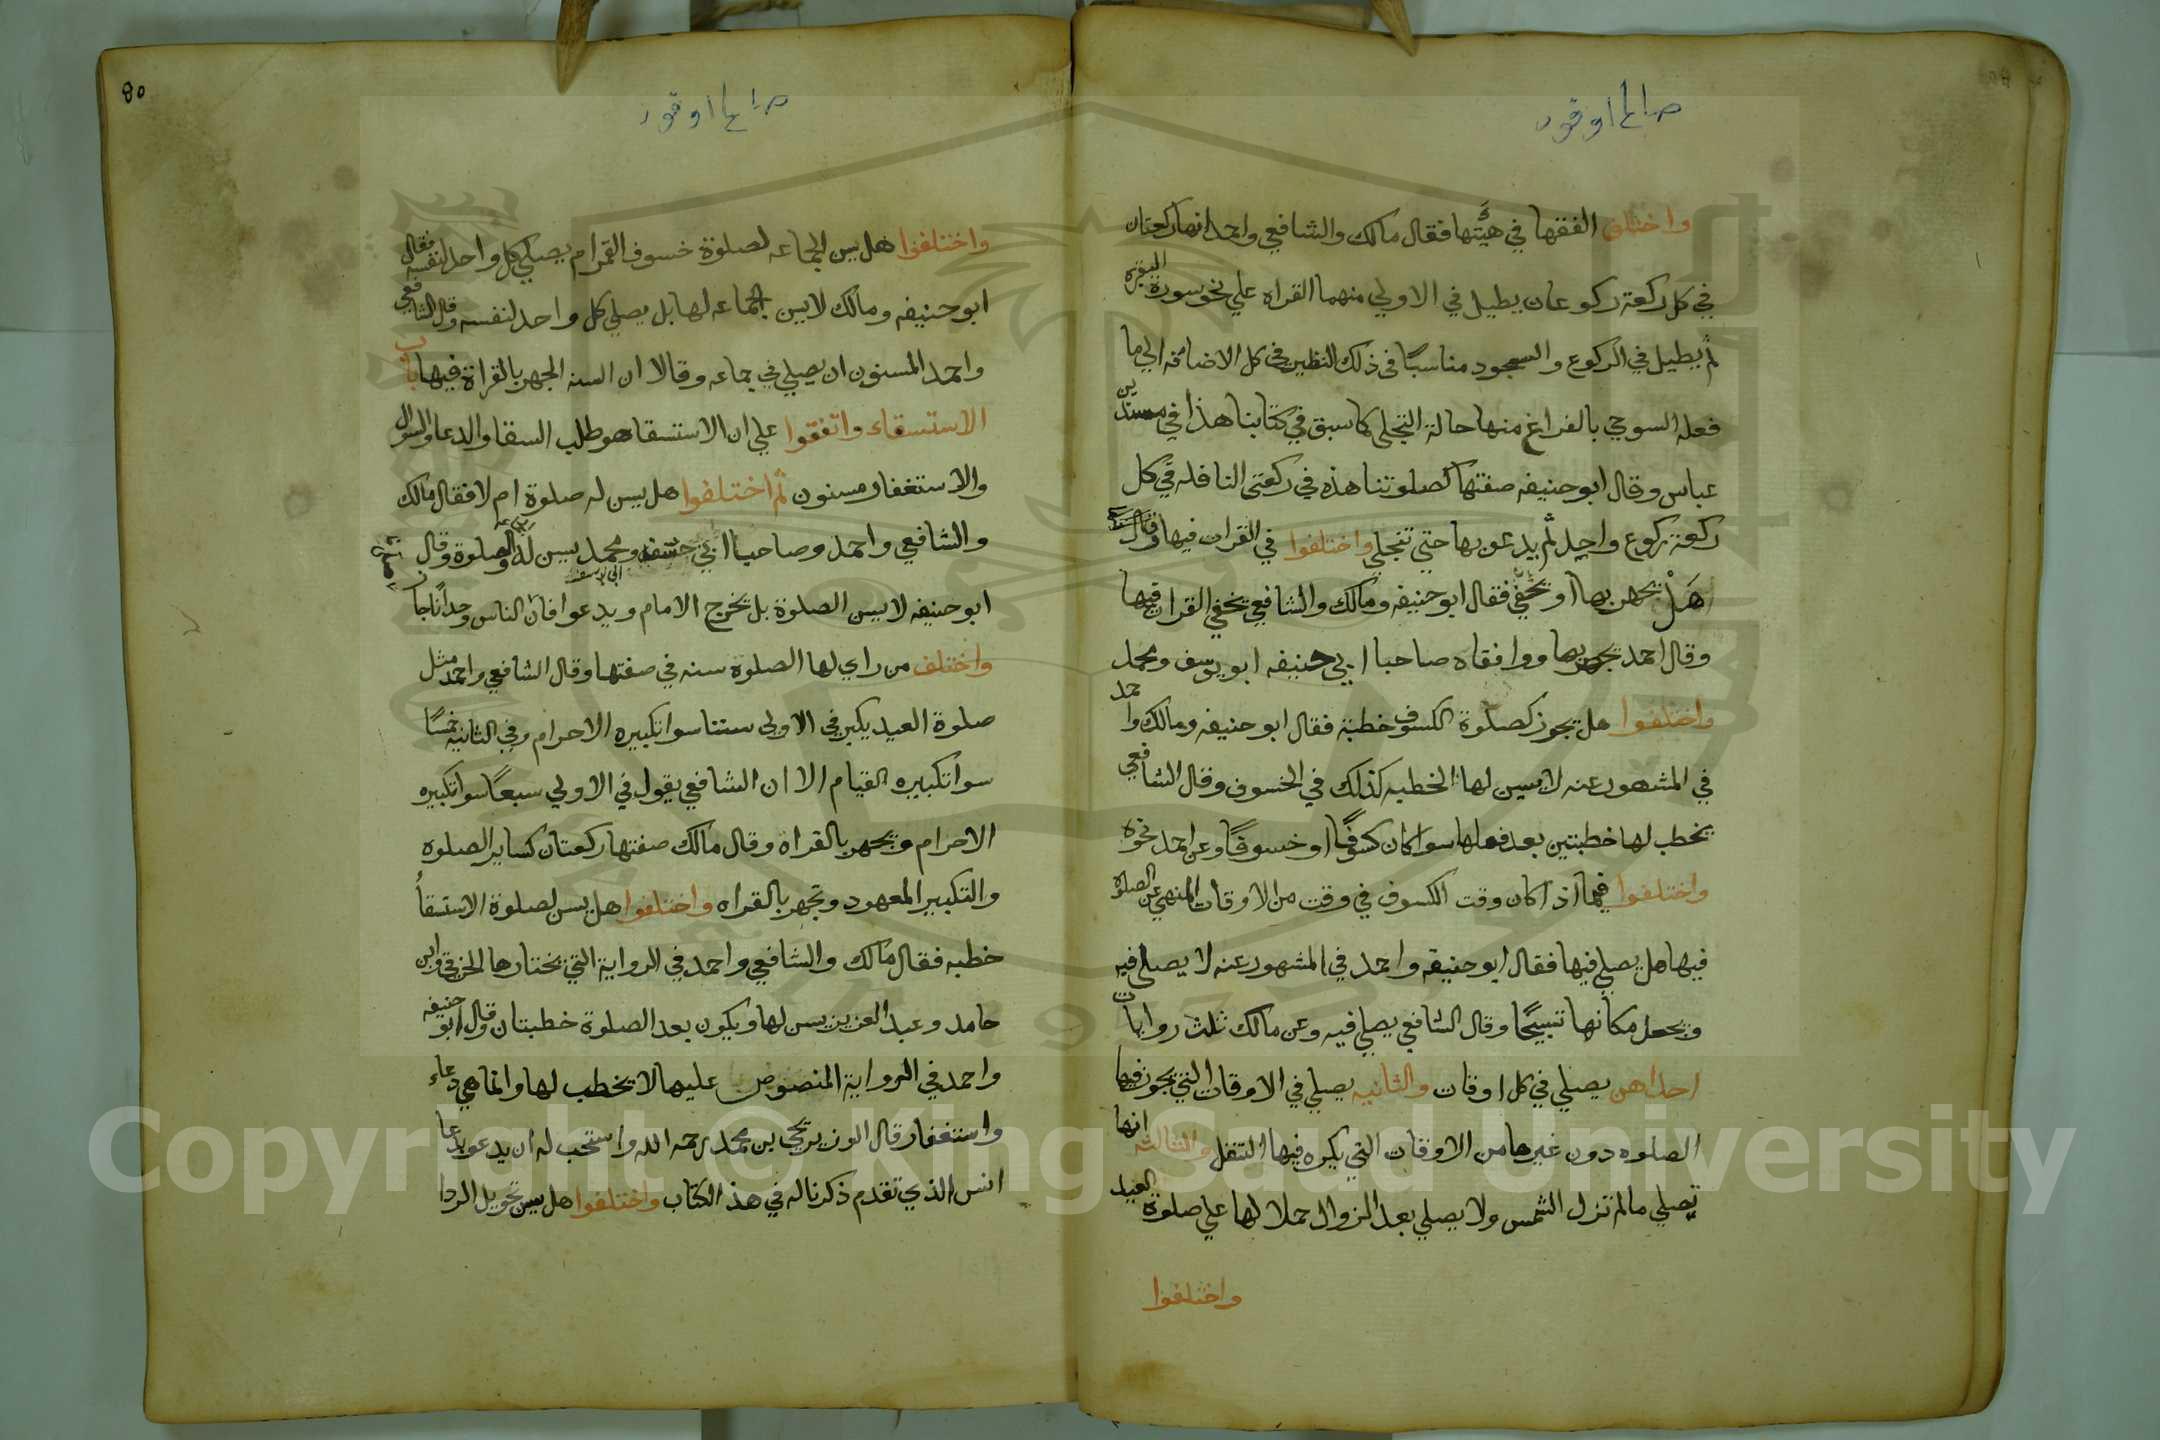 واختلف الفقها في هيئتها فقال مالك والشافعي واحمد انها ركعتان
في كل ركعة ركوعان يطيل في الاولي منهما القراه علي نحو سورة البقره
ثم يطيل في الركوع والسجود مناسبا في ذلك النظير في كل الاضافه الي ما
فعله السوي بالفراغ منها حالة التجلي كما سبق في كتابنا هذا في مسند بن
عباس وقال ابو حنيفه صفتها كصلوتنا هذه في ركعتي النافله في كل
ركعة ركوع واحد ثم يدعو بها حتي تنجلي واختلفوا في القراة فيها
هل يجهر بها او تخفي فقال ابو حنيفه ومالك والشافعي يخفي القران فيها
وقال احمد يجهر بها ووافقاه صاحبا ابي حنيفه ابو يوسف ومحمد
واختلفوا هل يجوز لصلوة الكسوف خطبة فقال ابو حنيفه ومالك واحمد
في المشهور عنه لا يسن لها الخطبه كذلك في الخسوف وقال الشافعي
يخطب لها خطبتين بعد فعلها سوا كان كسوفا او خسوفا وعن احمد نحوه
واختلفوا فيما اذا كان وقت الكسوف في وقت من الاوقات المنهي عن الصلوة
فيها هل يصلي فيها فقال ابو حنيفه واحمد في المشهور عنه لا يصلي فيه
ويجعل مكانها تسبيحا وقال الشافعي يصلي فيه وعن مالك ثلث روايات
احداهن يصلي في كل اوقات والثانيه يصلي في الاوقات التي يجوز فيها
الصلوه دون غيرها من الاوقات التي يكره فيها التنفل والثالثه انها
تصلي مالم تزل الشمس ولا يصلي بعد الزوال حملا لها علي صلوة العيد
واختلفوا
واختلفوا هل يسن الجماعه لصلوة خسوف القمر ام يصلي كل واحد لنفسه فقال
ابو حنيفه ومالك لا يسن الجماعه لها بل يصلي كل واحد لنفسه وقال الشافعي
واحمد المسنون ان يصلي في جماعه وقالا ان السنه الجهر بالقراة فيها باب
الاستسقاء واتفقوا علي ان الاستسقا هو طلب السقا والدعا والسوال
والاستغفار مسنون ثم اختلفوا هل يسن له صلوة ام لا فقال مالك
والشافعي واحمد وصاحبا ابي حنيفه ابي يوسف ومحمد يسن له والصلوة وقال
ابو حنيفه لا يسن الصلوة بل يخرج الامام ويدعو افان الناس وحدانا جاز
واختلف من راي لها الصلوه سنه في صفتها وقال الشافعي واحمد مثل
صلوة العيد يكبر في الاولي ستتا سوا تكبيره الاحرام وفي الثانيه خمسا
سوا تكبيره القيام الا ان الشافعي يقول في الاولي سبعا سوا تكبيره
الاحرام ويجهر بالقراه وقال مالك صفتها ركعتان كساير الصلوه
والتكبير المعهود وتجهر بالقراه واختلفوا هل يسن لصلوة الاستسقا
خطبه فقال مالك والشافعي واحمد في الرواية التي يختارها الخرقي وابن
حامد وعبد العزيز يسن لها ويكون بعد الصلوة خطبتان وقال ابو حنيفه
واحمد في الرواية المنصوص عليها لا تخطب لها وانما هي دعاء
واستغفار قال الوزير يحيي بن محمد رحمه الله واستحب له ان يدعو بدعا
انس الذي تقدم ذكرنا له في هذا الكتاب واختلفوا هل يسن تحويل الردا
Copyright © King Saud University